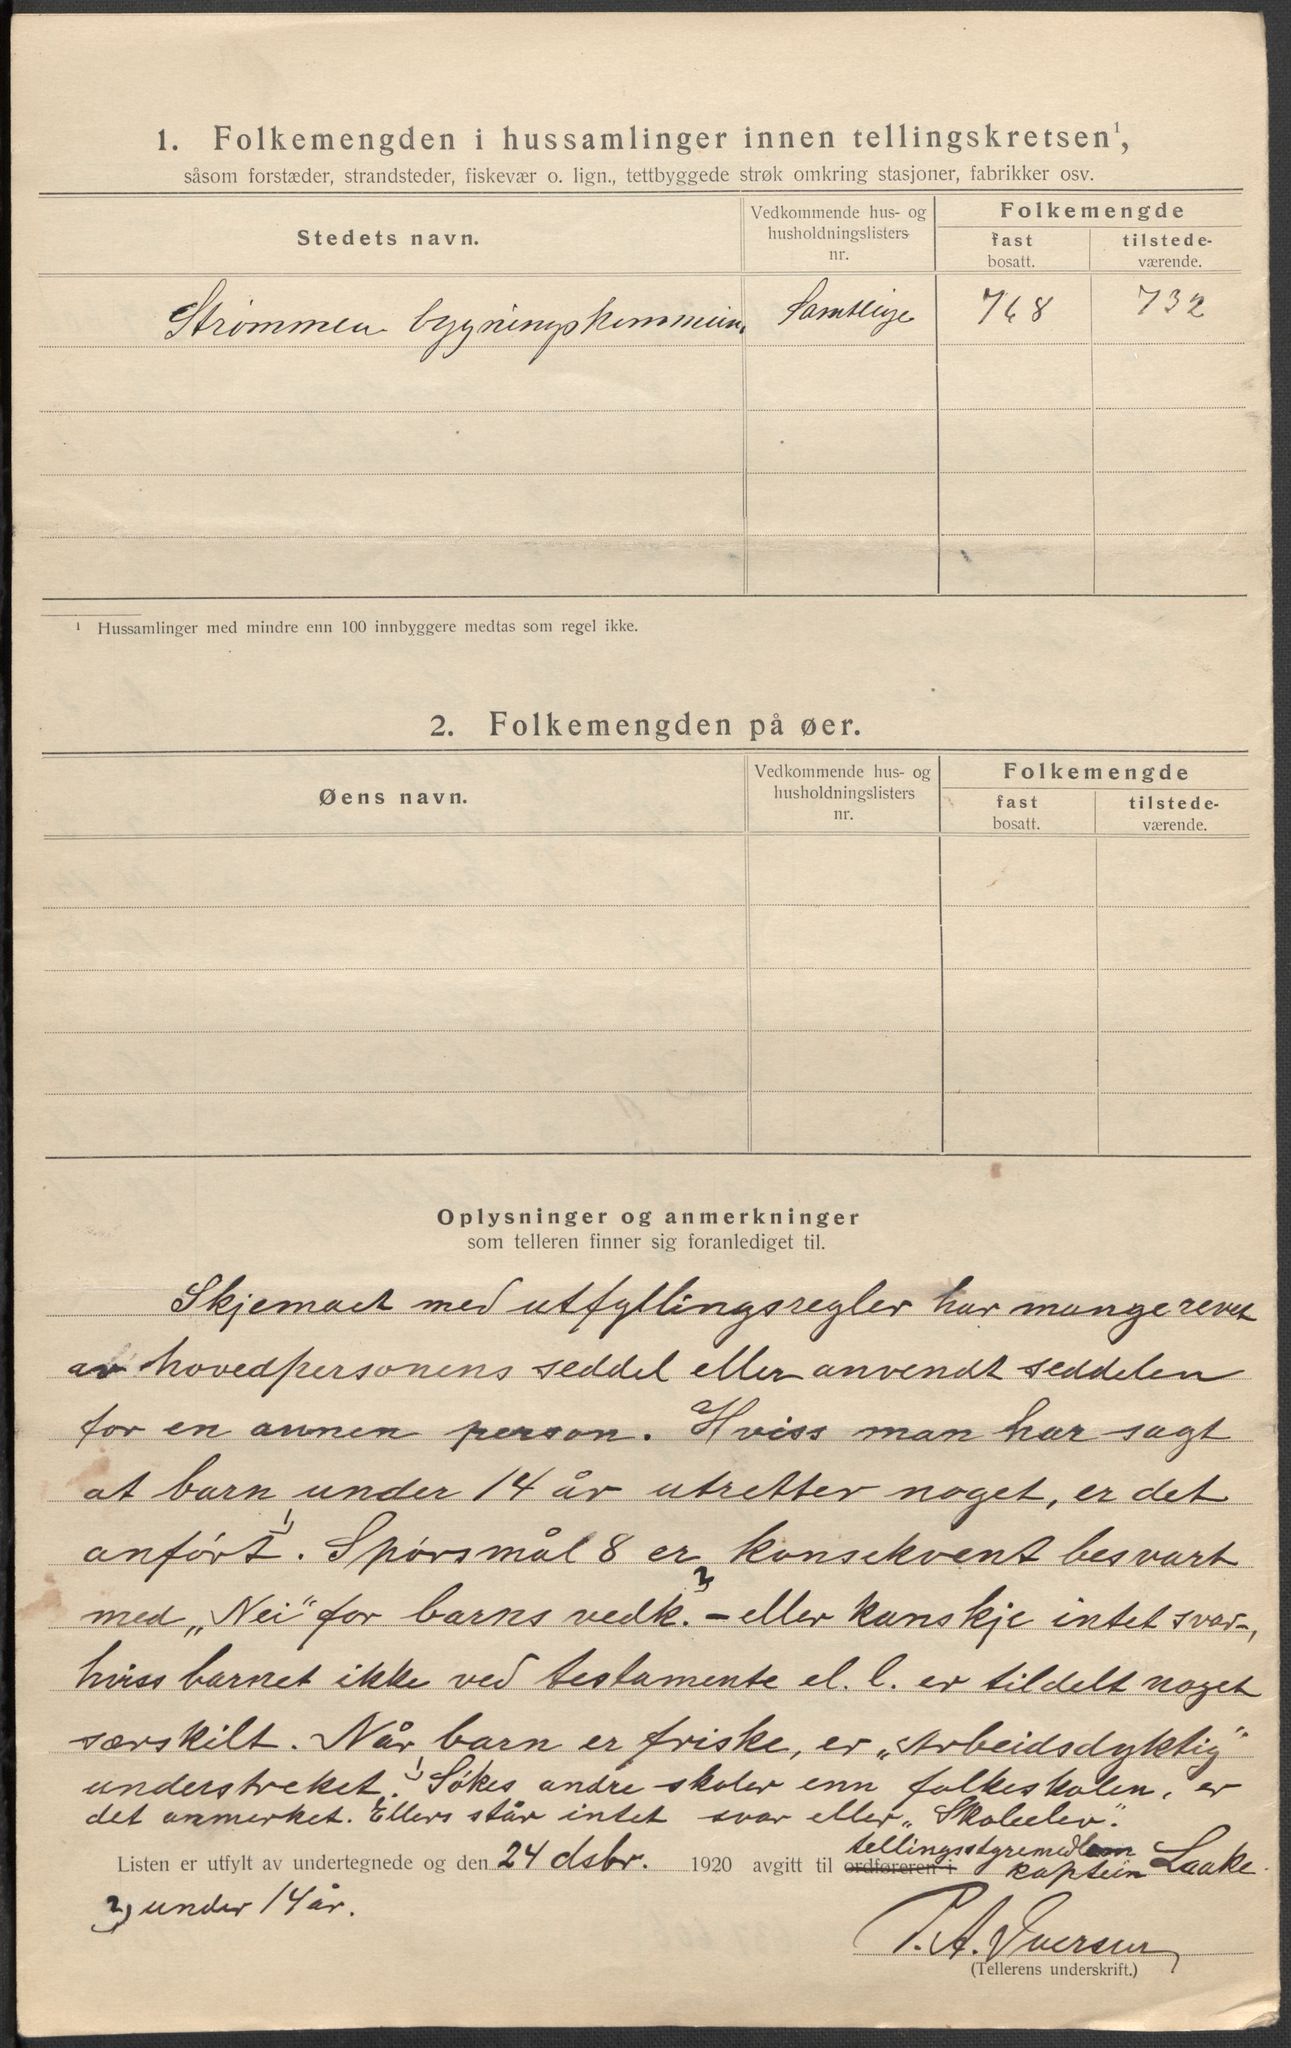 1. Folkemengden i hussamlinger innen tellingskretsen¹,
såsom forstæder, strandsteder, fiskevær o. lign., tettbyggede strøk omkring stasjoner, fabrikker osv.
Stedets navn.
Vedkommende hus- og husholdningslisters nr.
Folkemengde
fast bosatt.
tilstede-værende.
Strømmen bygningskommune Samtlige 768 732
¹ Hussamlinger med mindre enn 100 innbyggere medtas som regel ikke.
2. Folkemengden på øer.
Øens navn.
Vedkommende hus- og husholdningslisters nr.
Folkemengde
fast bosatt.
tilstede-værende.
Oplysninger og anmerkninger
som telleren finner sig foranlediget til.
Skjemaet med utfyllingsregler har mange revet
av hovedpersonens seddel eller anvendt seddelen
for en annen person. Hviss man har sagt
at barn under 14 år utretter noget, er det
anført. 1) Spørsmål 8 er konsekvent besvart
med „Nei“ for barns vedk. 2) – eller kanskje intet svar –,
hviss barnet ikke ved testamente el. l. er tildelt noget
særskilt. Når barn er friske, er „Arbeidsdyktig“
understreket. 1) Søkes andre skoler enn folkeskolen, er
det anmerket. Ellers står intet svar eller „Skoleelev“.
Listen er utfylt av undertegnede og den 24 dsbr. 1920 avgitt til ordføreren i tellingsstyremedlem kaptein Laake.
2) under 14 år.
P. A. Iversen
(Tellerens underskrift.)